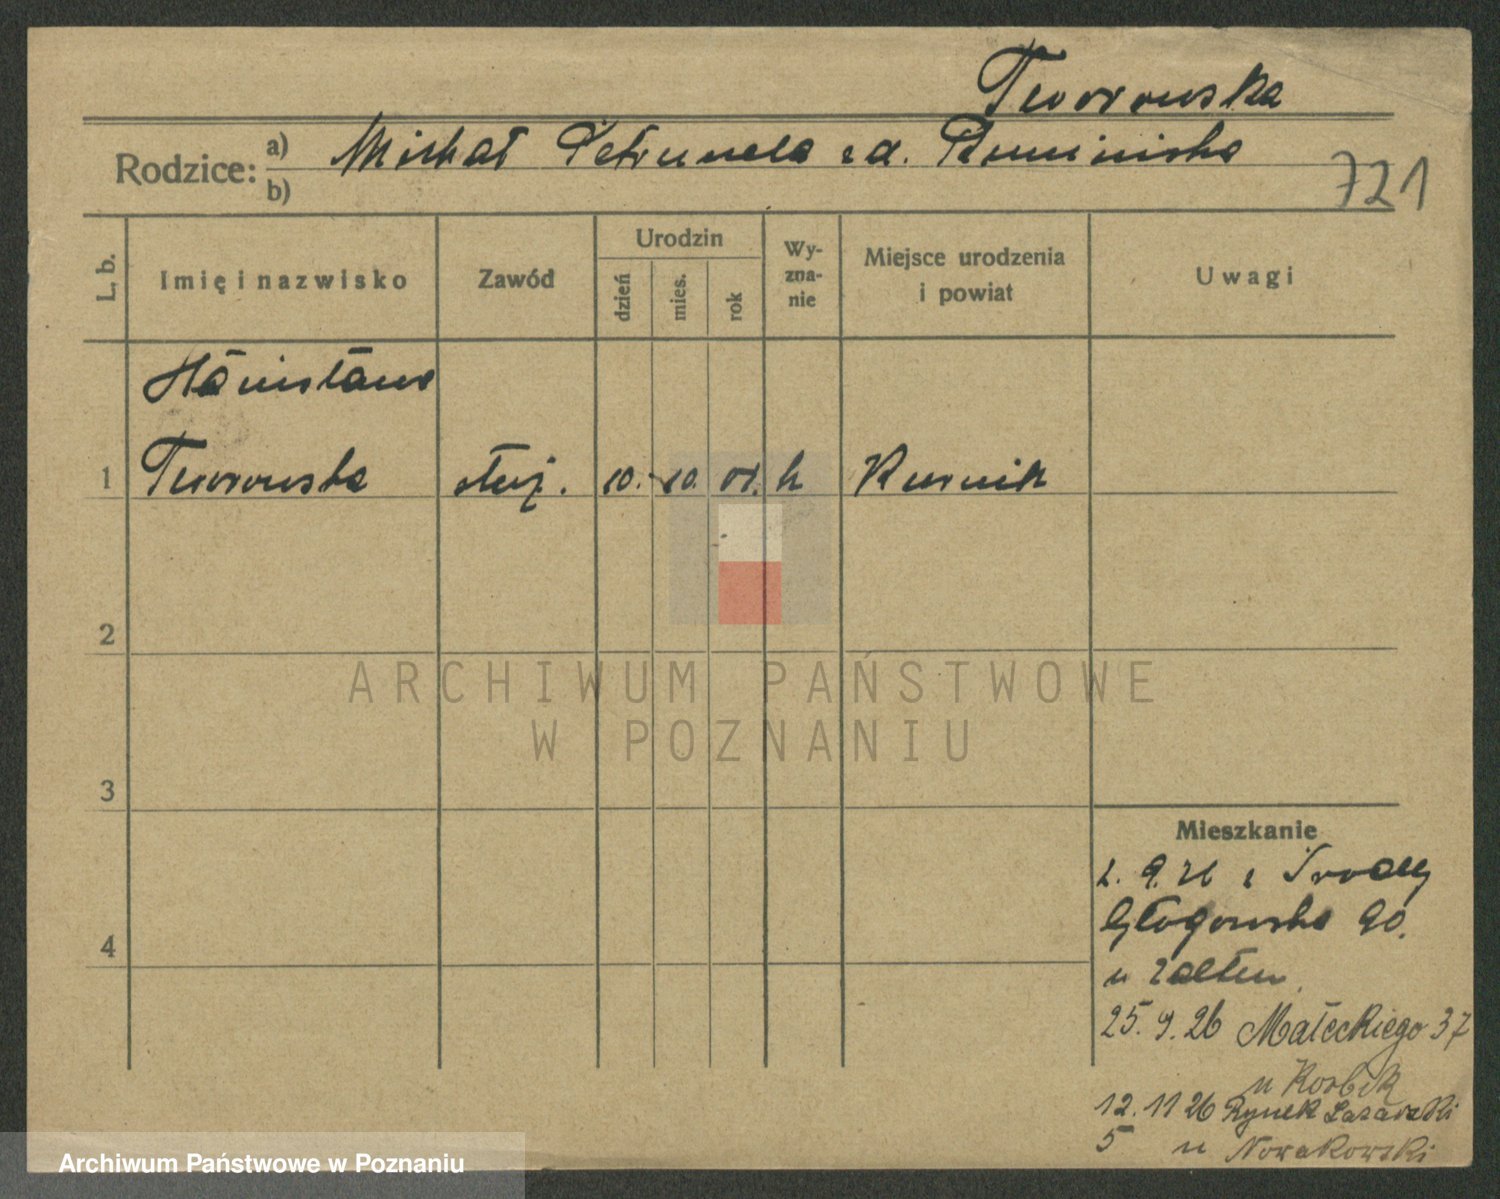 Tworowska
Rodzice: a) Michał Petronela z d. Rumińska
b)
721
L. b.
Imię i nazwisko
Zawód
Urodzin
dzień
mies.
rok
Wy-
zna-
nie
Miejsce urodzenia
i powiat
Uwagi
Stanisława
1 Tworowska służ. 10. 10. 01. k Kurnik
2
3
4
Mieszkanie
2. 9. 26 z Środy
Głogowska 90.
u
25. 9. 26 Małeckiego 37
u Korbik
12. 11 26 Rynek Łazarski
5 u Nowakowski
ARCHIWUM PAŃSTWOWE
W POZNANIU
Archiwum Państwowe w Poznaniu